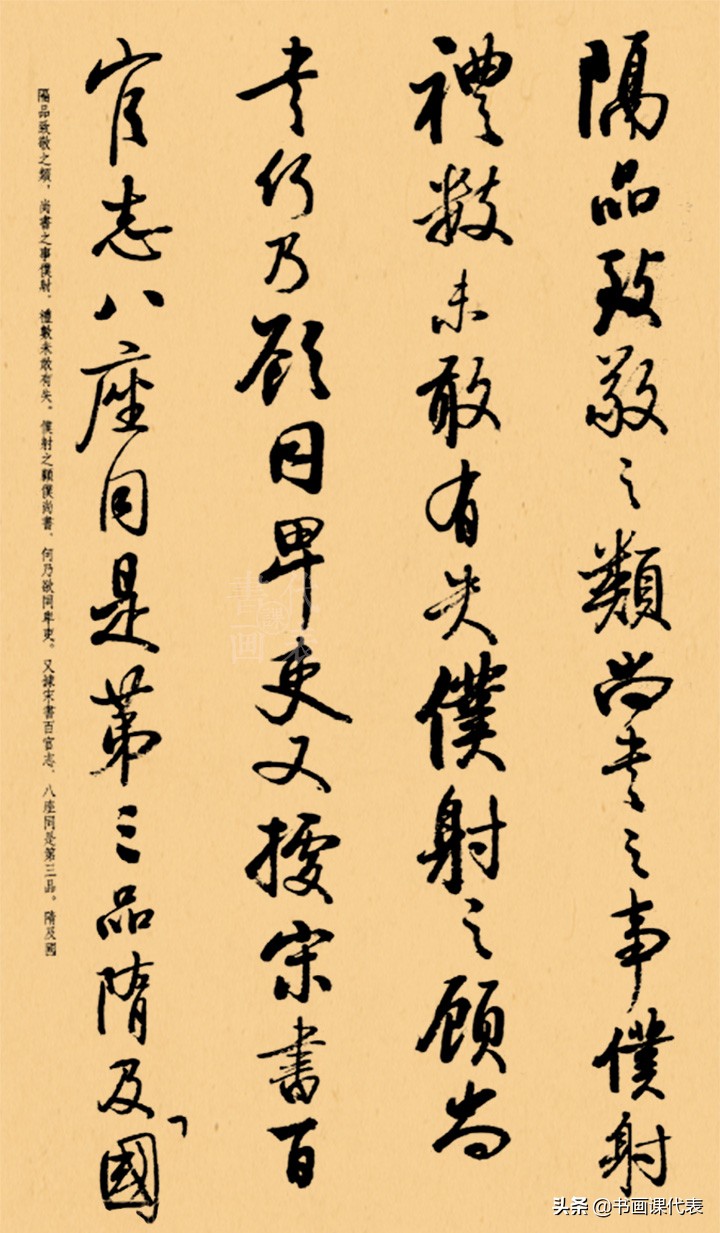 隔品致敬之類尚書之事僕射
禮數未敢有失僕射之顧尚
書何乃欲同卑吏又據宋書百
官志八座同是第三品隋及國
隔品致敬之類，尚書之事僕射，禮數未敢有失。僕射之顧僕尚書，何乃欲同卑吏。又據宋書百官志，八座同是第三品。隋及國
头条 @书画课代表